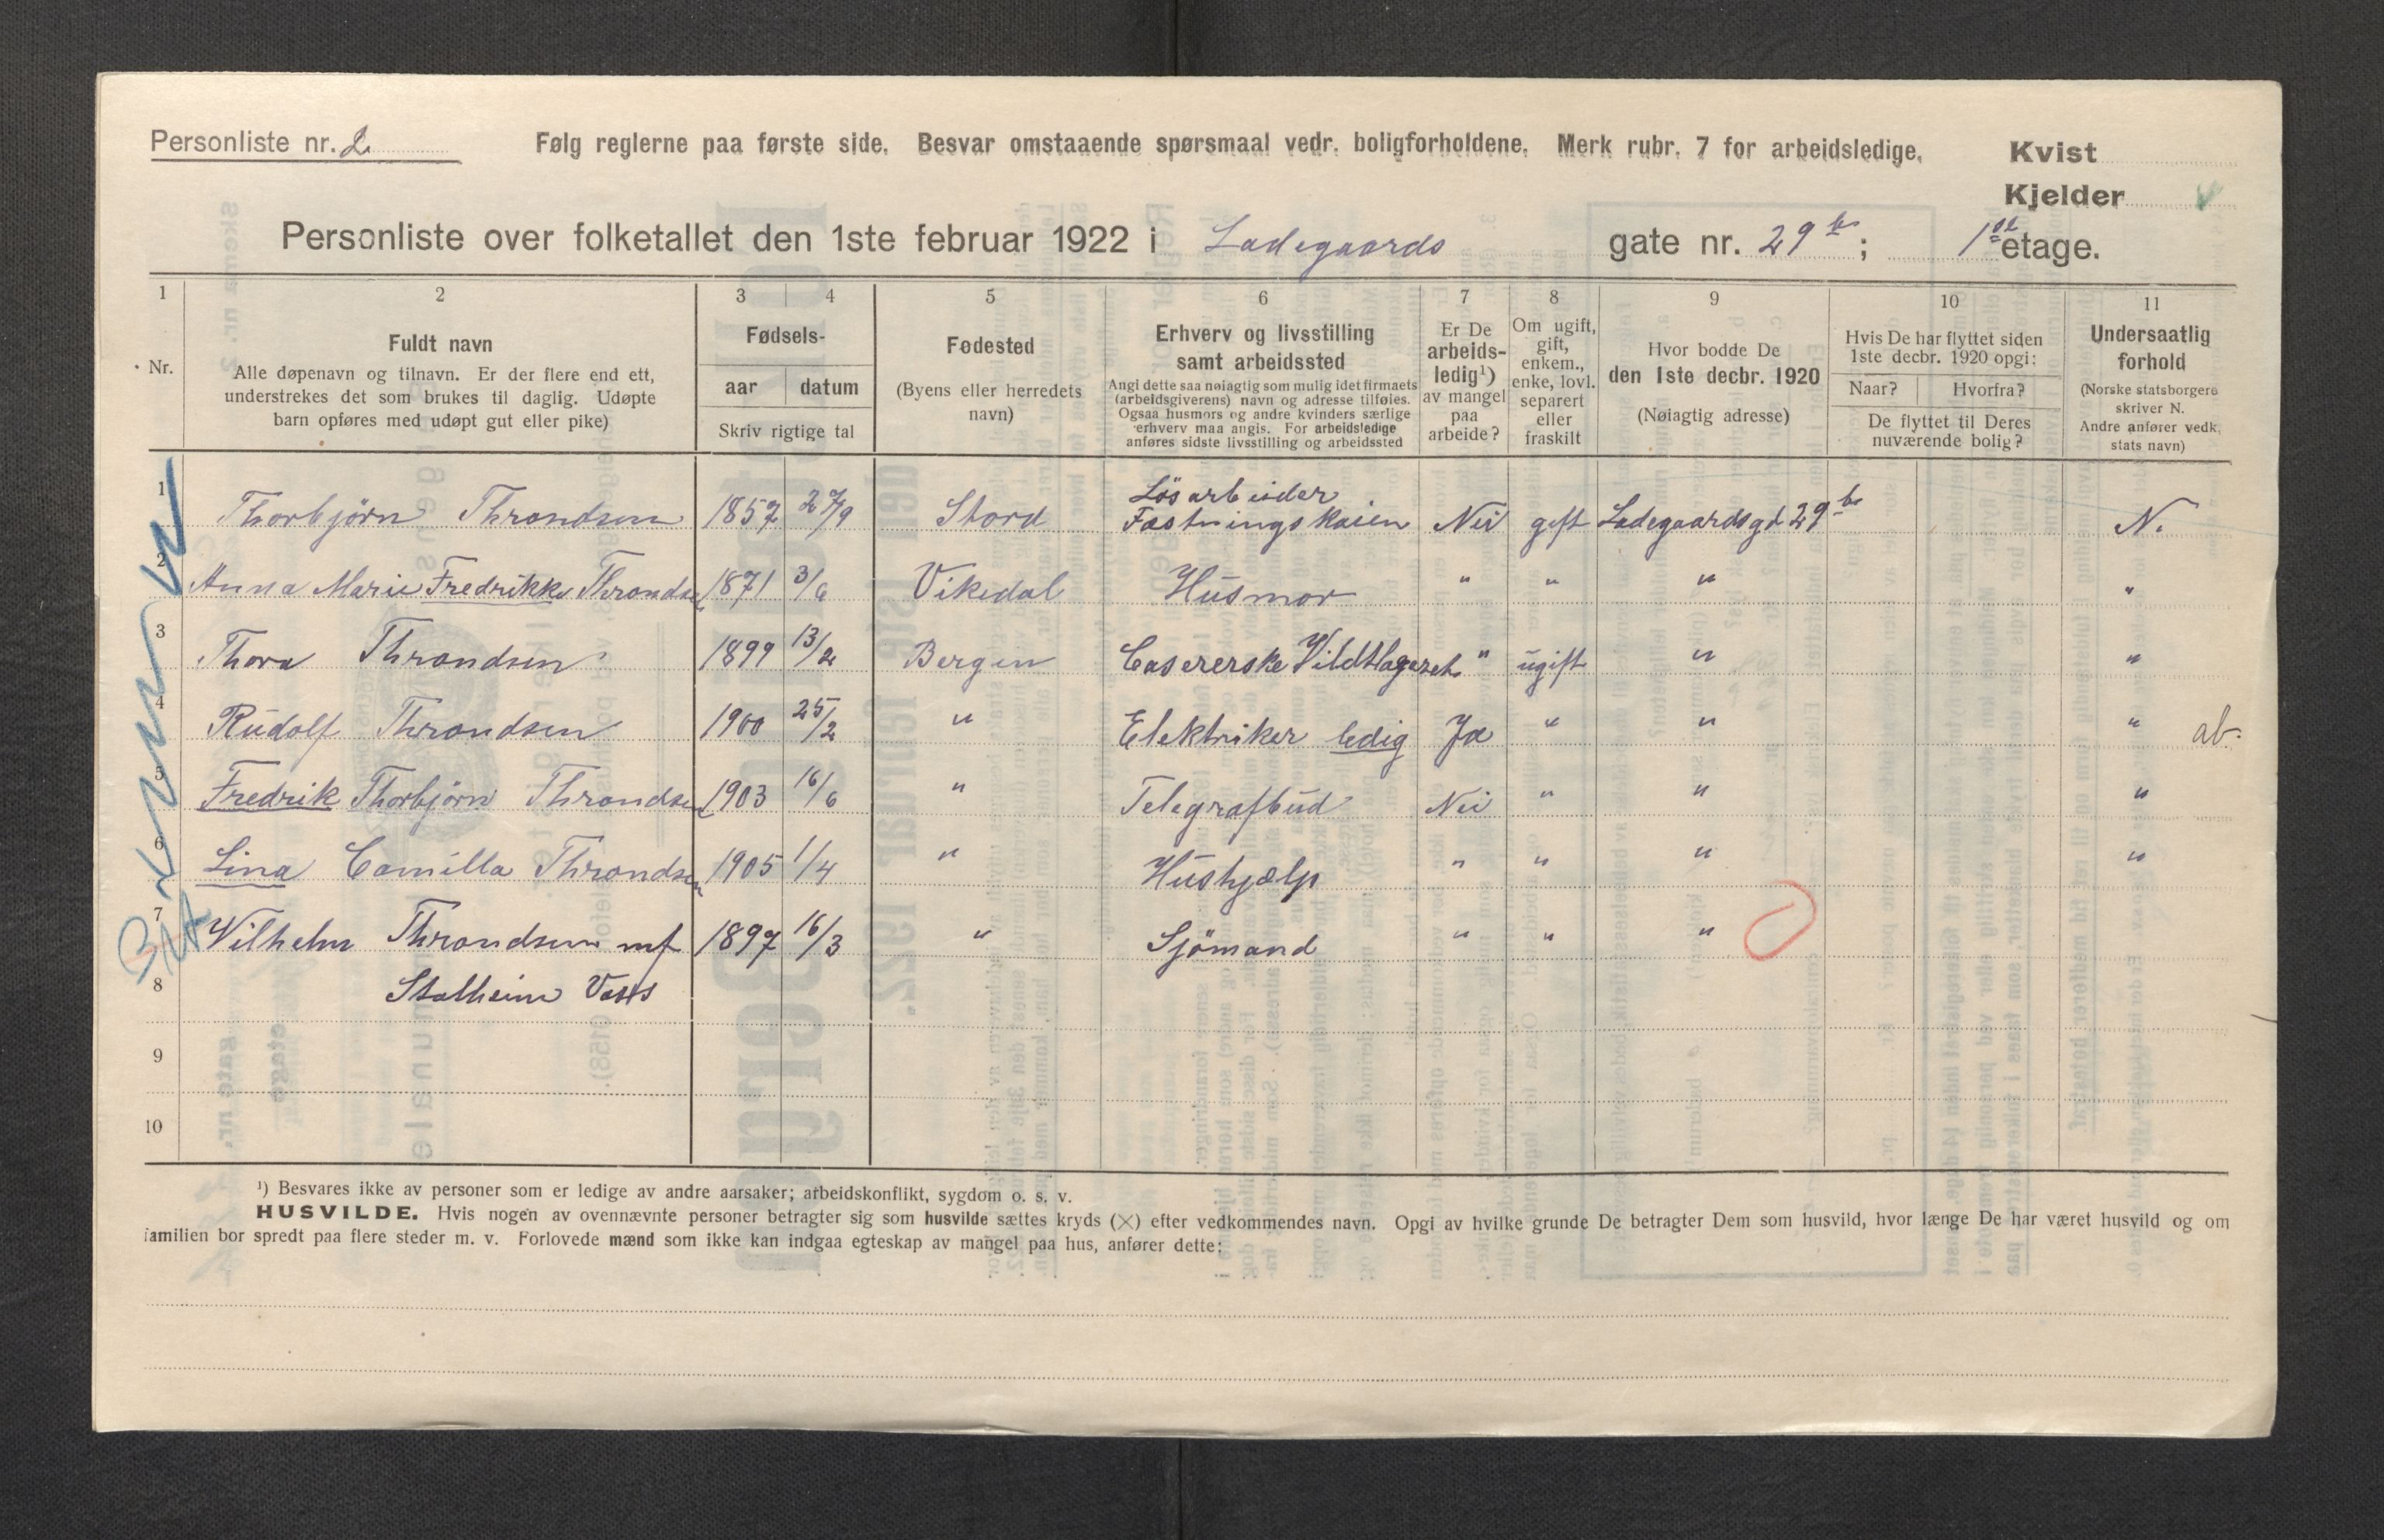 Personliste nr. 2
Følg reglerne paa første side. Besvar omstaaende spørsmaal vedr. boligforholdene. Merk rubr. 7 for arbeidsledige.
Kvist
Kjelder
Personliste over folketallet den 1ste februar 1922 i Ladegaards gate nr. 29 b; 1ste etage.
1 2 3 4 5 6 7 8 9 10 11
Nr.
Fuldt navn
Alle døpenavn og tilnavn. Er der flere end ett,
understrekes det som brukes til daglig. Udøpte
barn opføres med udøpt gut eller pike)
Fødsels-
aar datum
Skriv rigtige tal
Fødested
(Byens eller herredets
navn)
Erhverv og livsstilling
samt arbeidssted
Angi dette saa nøiagtig som mulig idet firmaets
(arbeidsgiverens) navn og adresse tilføies.
Ogsaa husmors og andre kvinders særlige
erhverv maa angis. For arbeidsledige
anføres sidste livsstilling og arbeidssted
Er De
arbeids-
ledig¹)
av mangel
paa
arbeide?
Om ugift,
gift,
enkem.,
enke, lovl.
separert
eller
fraskilt
Hvor bodde De
den 1ste decbr. 1920
(Nøiagtig adresse)
Hvis De har flyttet siden
1ste decbr. 1920 opgi:
Naar? Hvorfra?
De flyttet til Deres
nuværende bolig?
Undersaatlig
forhold
(Norske statsborgere
skriver N.
Andre anfører vedk.
stats navn)
1 Thorbjörn Throndsen 1857 27/9 Stord Lösarbeider Fæstningskaien Nei gift Ladegaardsgt 29 b N.
2 Anna Marie Fredrikke Throndsen 1871 3/6 Vikedal Husmor " " " "
3 Thora Throndsen 1899 13/2 Bergen Casererske Vildtlageret " ugift " "
4 Rudolf Throndsen 1900 25/2 " Elektriker ledig Ja " " " ab.
5 Fredrik Thorbjörn Throndsen 1903 16/6 " Telegrafbud Nei " " "
6 Lina Camilla Throndsen 1905 1/4 " Hushjælp " " " "
7 Vilhelm Throndsen mf 1897 16/3 " Sjömand " " "
8 Stalheim Voss
9
10
¹) Besvares ikke av personer som er ledige av andre aarsaker; arbeidskonflikt, sygdom o. s. v.
HUSVILDE. Hvis nogen av ovennævnte personer betragter sig som husvilde sættes kryds (×) efter vedkommendes navn. Opgi av hvilke grunde De betragter Dem som husvild, hvor længe De har været husvild og om
familien bor spredt paa flere steder m. v. Forlovede mænd som ikke kan indgaa egteskap av mangel paa hus, anfører dette: